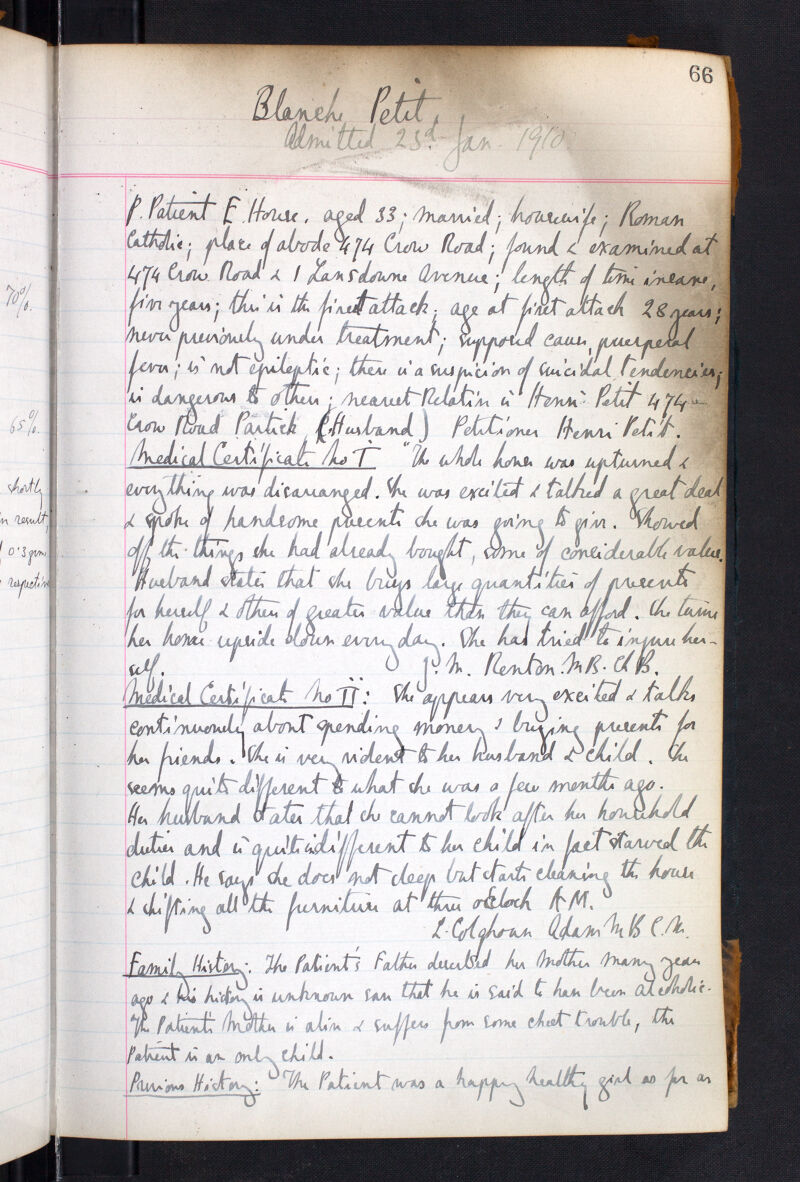 66
Blanche Petit.
Admitted 23d Jan. 1910
P. Patient E. House. aged 33; married; housewife; Roman
Catholic; place of abode 474 Crow Road; found & examined at
474 Crow Road & 1 Lansdowne Avenue; length of time insane,
five years; this is the first attack; age at first attack 28 years;
never previously under treatment; supposed cause, puerperal
fever; is not epileptic; there is a suspicion of suicidal tendencies;
is dangerous to others; nearest Relative is Henri Petit 474
Crow Road Partick (Husband) Petitioner Henri Petit.
Medical Certificate No I "The whole house was upturned &
everything was disarranged. She was excited & talked a great deal
& spoke of handsome presents she was going to give. Showed
off the things she had already bought, some of considerable value.
Husband states that she buys large quantities of presents
for herself & others of greater value than they can afford. She turns
her house upside down every day. She has tried to injure her-
self. J. M. Renton. M.B. Ch B.
Medical Certificate No II: She appears very excited & talks
continuously about spending money & buying presents for
her friends. She is very violent to her husband & child. She
seems quite different to what she was a few months ago.
Her husband states that she cannot look after her household
duties and is quite indifferent to her child in fact starved the
child. He says she does not sleep but starts cleaning the house
& shifting all the furniture at three o'clock A.M.
L. Colqhoun Adam M B C. M.
Family History: The Patient's Father deserted her Mother many years
ago & his history is unknown save that he is said to have been alcoholic.
The Patients Mother is alive & suffers from some chest trouble, the
Patient is an only child.
Previous History: The Patient was a happy healthy girl as far as
70%.
65%.
shortly
in result,
0.3 grm
respective